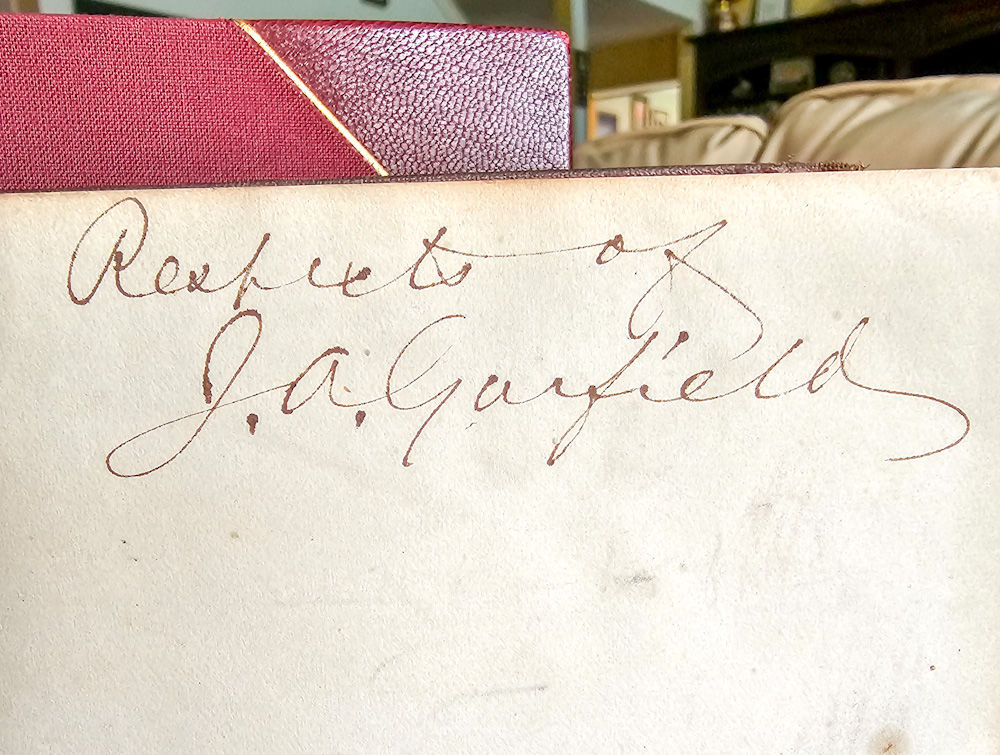 Respects of
J. A. Garfield